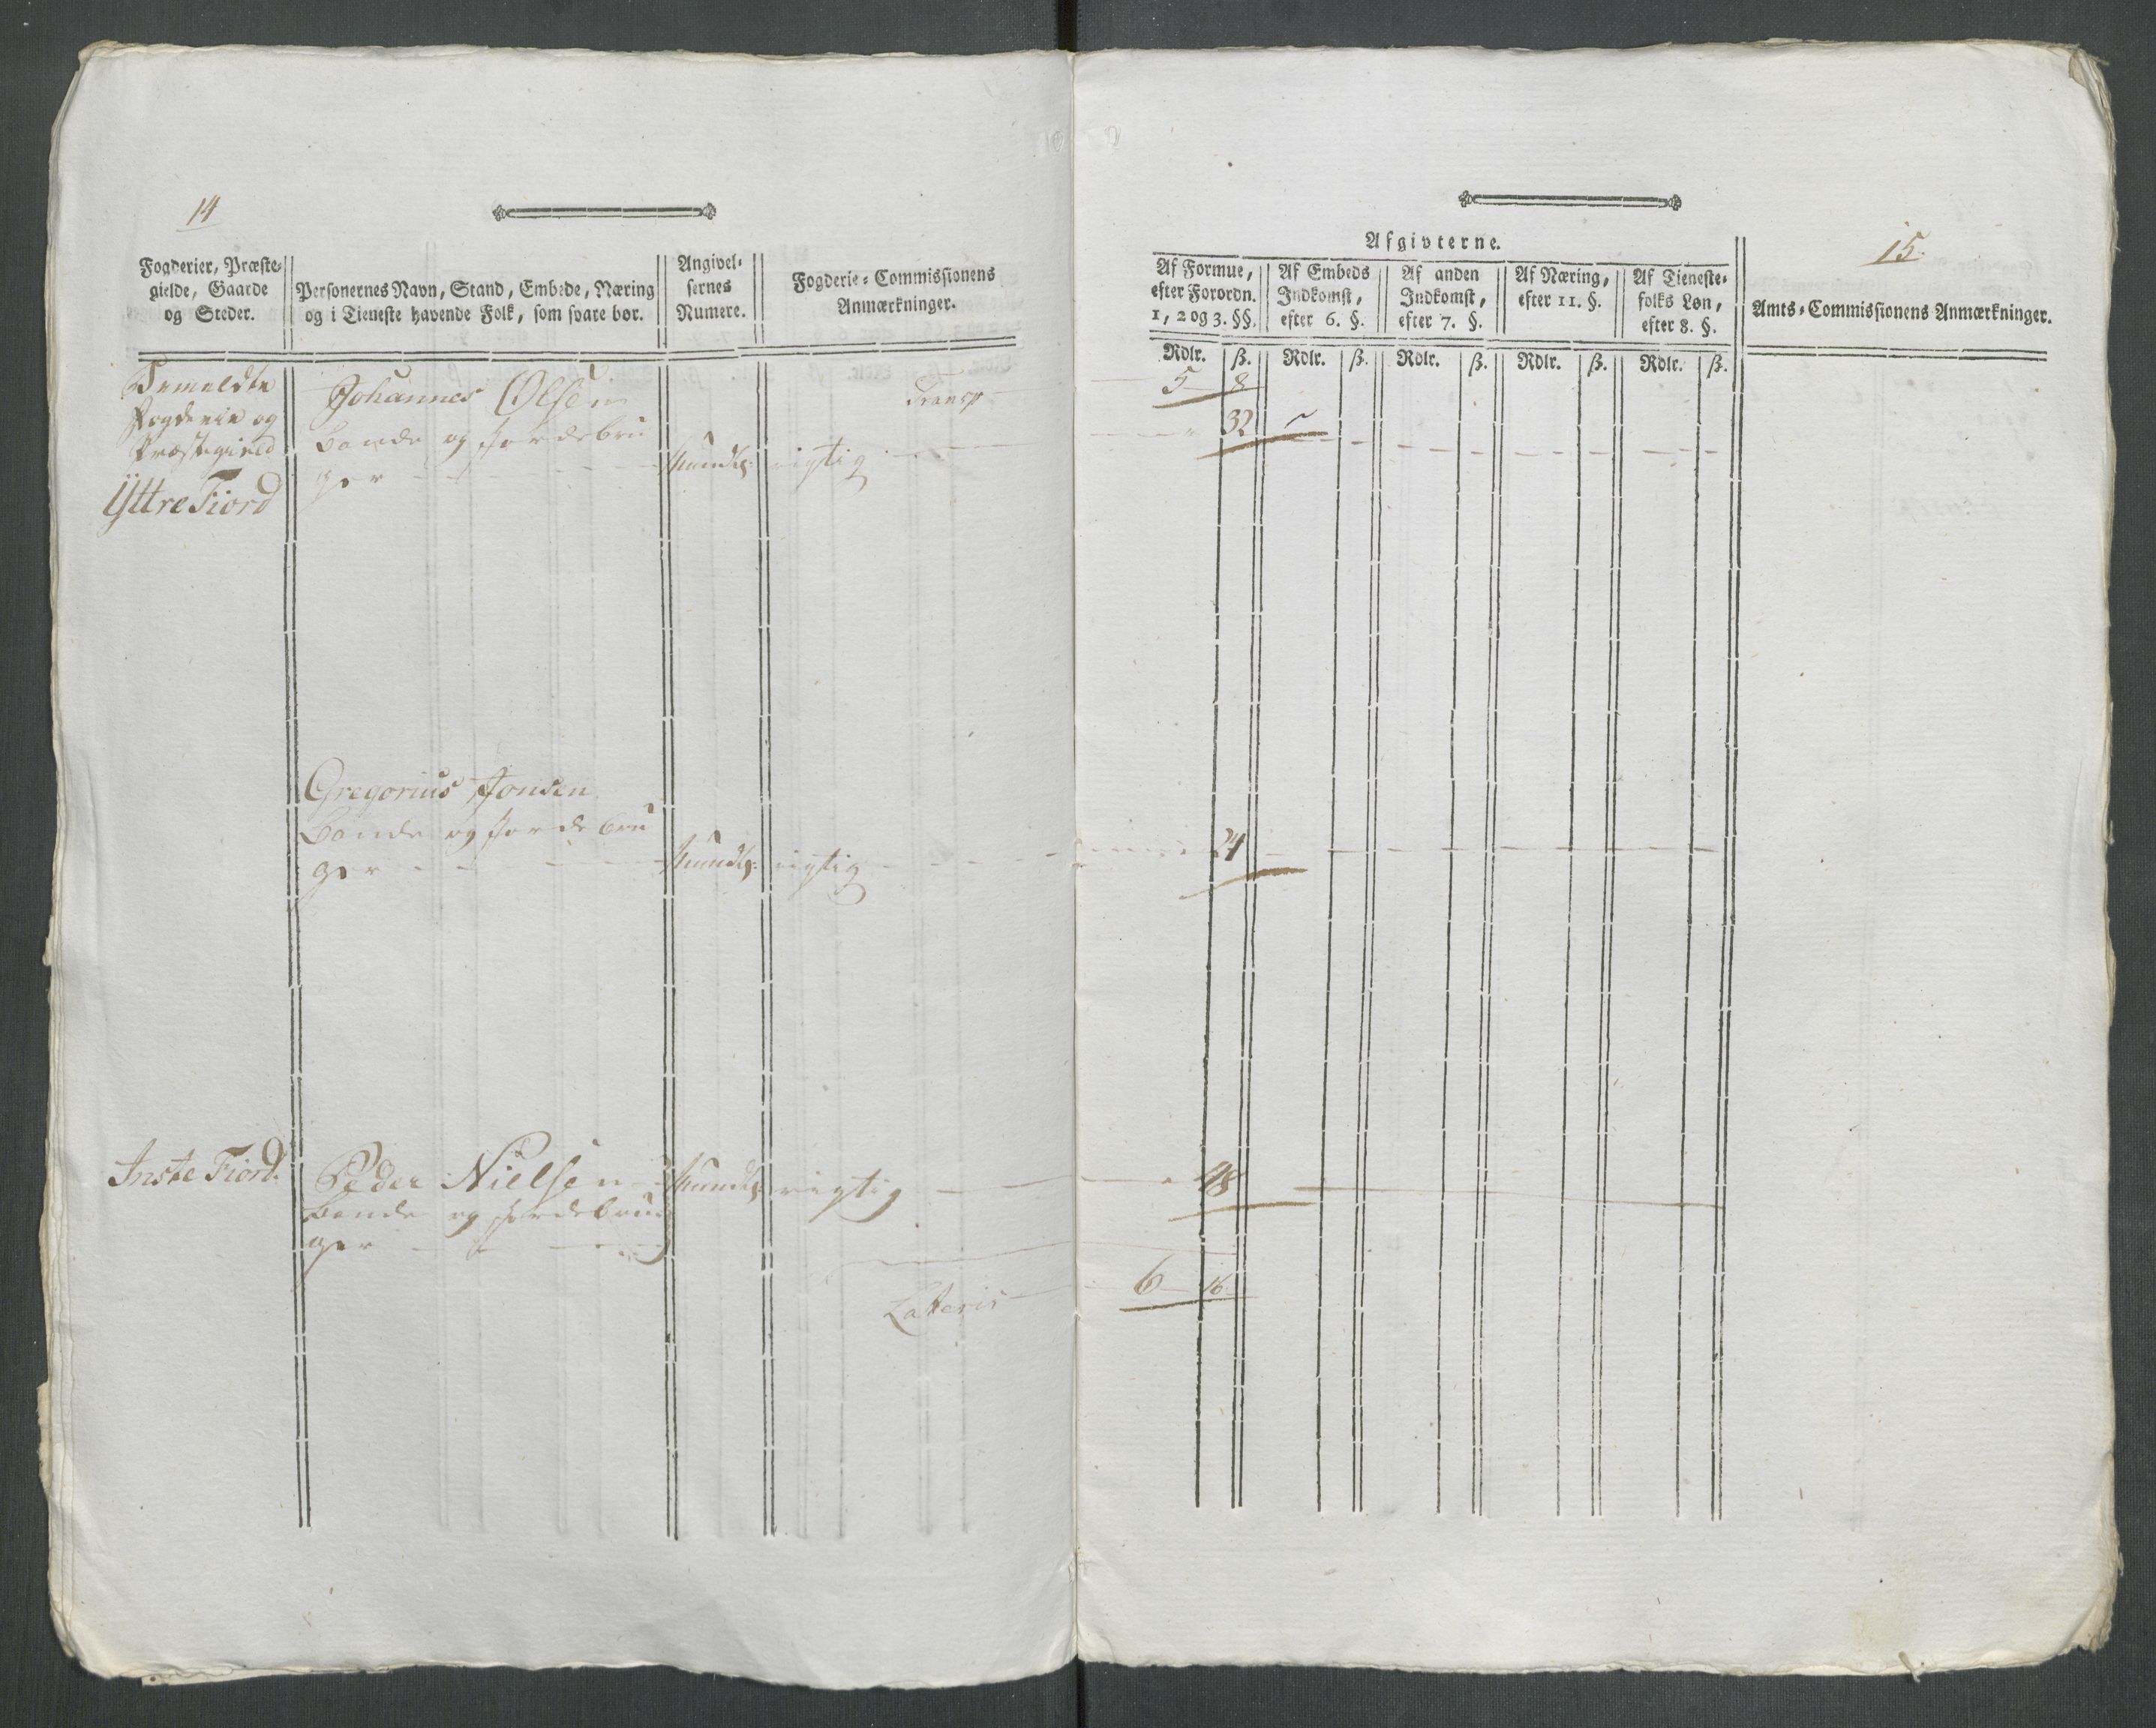 14
Fogderier, Præste-
gielde, Gaarde
og Steder.
Personernes Navn, Stand, Embede, Næring
og i Tieneste havende Folk, som svare bør.
Angivel-
sernes
Numere.
Fogderie-Commissionens
Anmærkninger.
Bemeldte
Fogderie og
Præstegield
Yttre Fiord
Johannes Olsen
bonde og jordebru
ger
Mundtl:
rigtig
Transp
Gregorius Jonsen
bonde og jordebru
ger
Mundtl:
rigtig
Inste Fiord.
Peder Nielsen
bonde og jordebru
ger
Mundtl:
rigtig
Latteris
15.
Afgivterne.
Af Formue,
efter Forordn.
1, 2 og 3. §§.
Af Embeds
Indkomst,
efter 6. §.
Af anden
Indkomst,
efter 7. §.
Af Næring,
efter 11. §.
Af Tieneste-
folks Løn,
efter 8. §.
Amts-Commissionens Anmærkninger.
Rdlr. ß. Rdlr. ß. Rdlr. ß. Rdlr. ß. Rdlr. ß.
5 8
32
24
48
6 16